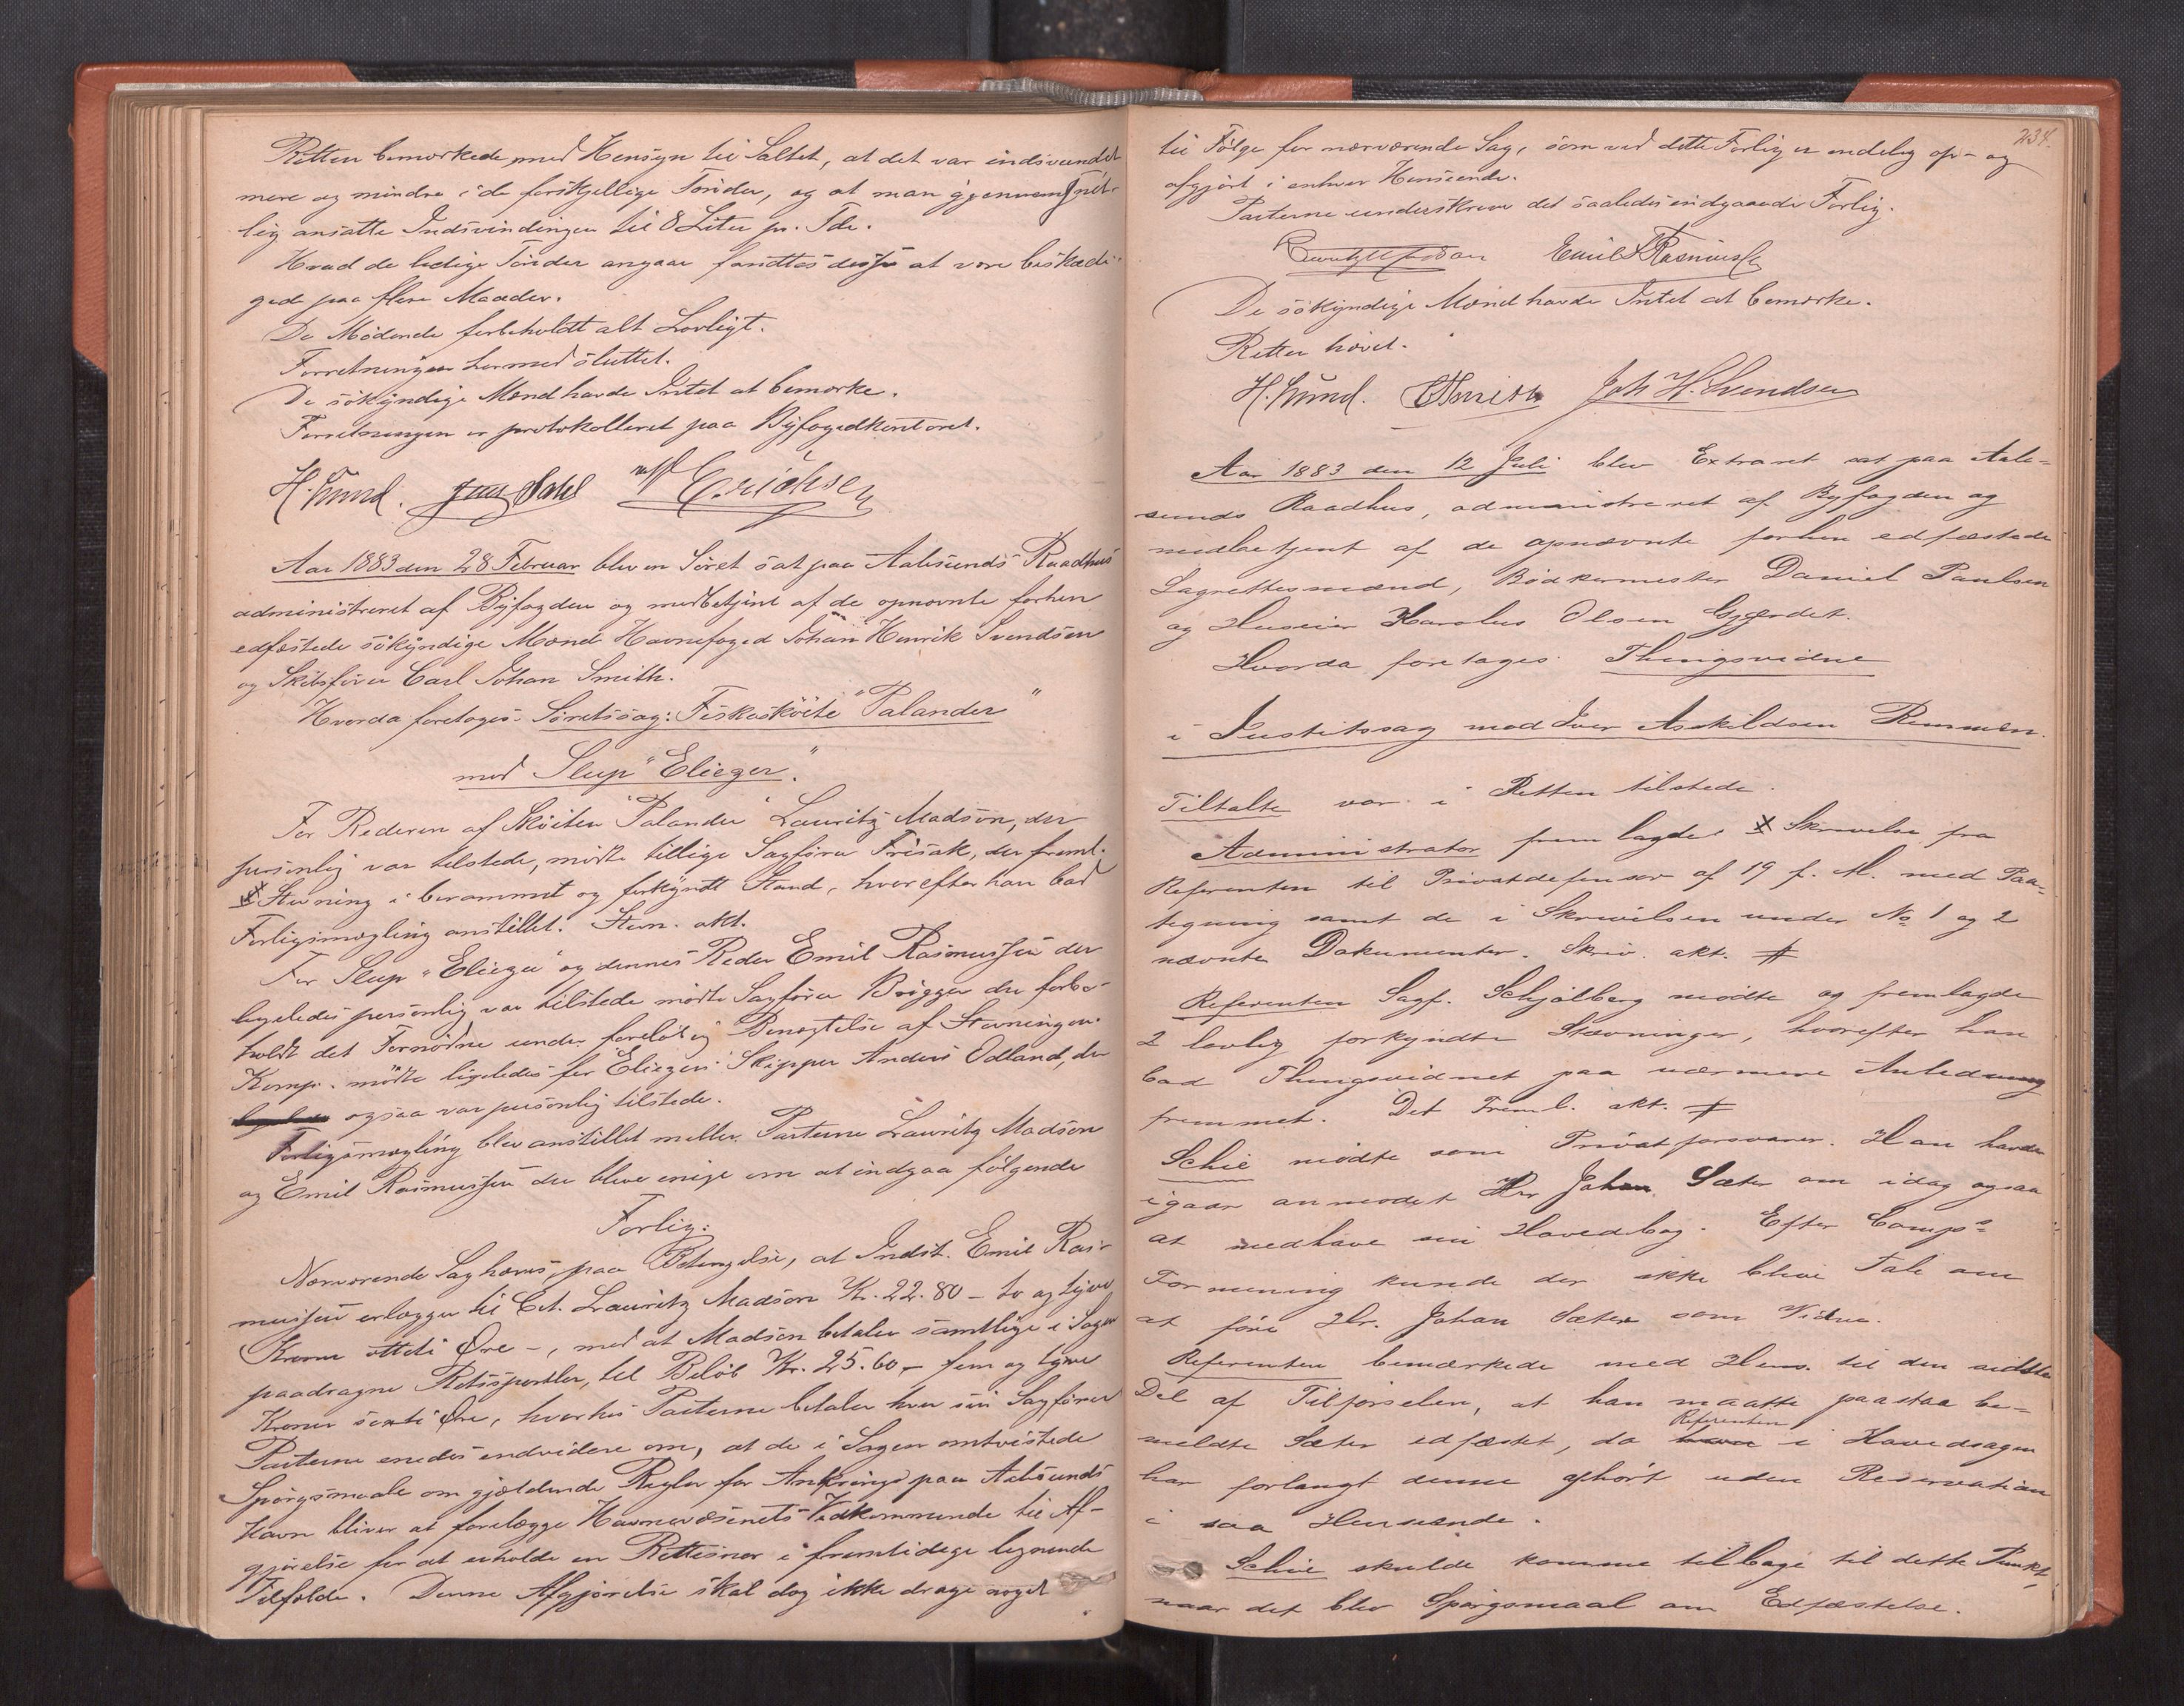 Retten bemærkede med Hensyn til Saltet, at det var indsvundet
mere og mindre i de forskjellige Tønder, og at man gjennemsnit-
lig ansatte Indsvindingen til 8 Liter pr. Tde.
Hvad de ledige Tønder angaar fandtes disse at være beskadi-
gede paa flere Maader.
De Mødende forbeholdt alt Lovligt.
Forretningen hermed sluttet.
De søkyndige Mænd havde Intet at bemærke.
Forretningen er protokolleret paa Byfogedkontoret.
H. Lund. Jens Dahl Erichsen
Aar 1883 den 28 Februar blev en Søret sat paa Aalesunds Raadhus
administreret af Byfogden og medbetjent af de opnævnte forhen
edfæstede søkyndige Mænd Havnefoged Johan Henrik Svendsen
og Skibsfører Carl Johan Smith.
Hvorda foretoges: Søretssag: Fiskeskøite "Palander"
mod Slup "Eliezer".
For Rederen af Skøiten "Palander" Lauritz Madsøn, der
personlig var tilstede, mødte tillige Sagfører Frisak, der freml.
Stævning i berammet og forkyndt Stand, hvorefter han bad
Forligsmægling anstillet. Stevn. akt.
For Slup "Eliezer" og dennes Reder Emil Rasmussen der
ligeledes personlig var tilstede mødte Sagfører Brigger der forbe-
holdt det Fornødne under foreløbig Benægtelse af Stevningen.
Komp. mødte ligeledes for Eliezers Skipper Anders Odland, der
ogsaa var personlig tilstede.
Forligsmægling blev anstillet mellem Parterne Lauritz Madsøn
og Emil Rasmussen der bleve enige om at indgaa følgende
Forlig:
Nærværende Sag hæves, paa Betingelse, at Indst. Emil Ras-
mussen erlægger til Cit. Lauritz Madsøn Kr. 22.80 – to og tyve
Kroner otteti Øre –, med at Madsøn betaler samtlige i Sagen
paadragne Retssportler, til Beløb Kr. 25.60 – fem og tyve
Kroner sexti Øre, hvorhos Parterne betaler hver sin Sagfører
Parterne enedes endvidere om, at de i Sagen omtvistede
Spørgsmaale om gjældende Regler for Ankrings paa Aalesunds
Havn bliver at forelægge Havnevæsenets Vedkommende til Af-
gjørelse for at erholde en Rettesnor i fremtidige lignende
Tilfælde. Denne Afgjørelse skal dog ikke drage noget
234.
til Følge for nærværende Sag, som ved dette Forlig er endelig op- og
afgjort i enhver Henseende.
Parterne underskrev det saaledes indgaaede Forlig.
Lauritz Madsøn Emil Rasmussen
De søkyndige Mænd havde Intet at bemærke.
Retten hævet.
H. Lund. C Smith Joh H. Svendsen
Aar 1883 den 12 Juli blev Extraret sat paa Aale-
sunds Raadhus, administreret af Byfogden og
medbetjent af de opnævnte forhen edfæstede
Lagrettesmænd, Bødkermester Daniel Paulsen
og Huseier Karolus Olsen Gjærdet.
Hvorda foretages: Thingsvidne
i Justitssag mod Iver Askildsen Remmen.
Tiltalte var i Retten tilstede.
Administrator fremlagde: Skrivelse fra
Referenten til Privatdefensor af 19 f. M. med Paa-
tegning samt de i Skrivelsen under No 1 og 2
nævnte Dokumenter. Skriv. akt.
Referenten Sagf. Schjølberg mødte og fremlagde
2 lovlig forkyndte Stævninger, hvorefter han
bad Thingsvidnet paa nærmere Anledning
fremmet. Det Freml. akt.
Schie mødte som Privat forsvarer. Han havde
igaar anmodet Hr Johan Sæter om idag ogsaa
at medhave sin Hovedbog. Efter Comps
Formening kunde der ikke blive Tale om
at føre Hr. Johan Sæter som Vidne.
Referenten bemærkede med Hens. til den sidste
Del af Tilførselen, at han maatte paastaa be-
meldte Sæter edfæstet, da Referenten i Hovedsagen
har forlangt denne afhørt uden Reservation
i saa Henseende.
Schie skulde komme tilbage til dette Punkt,
naar det blev Spørgsmaal om Edfæstelse.